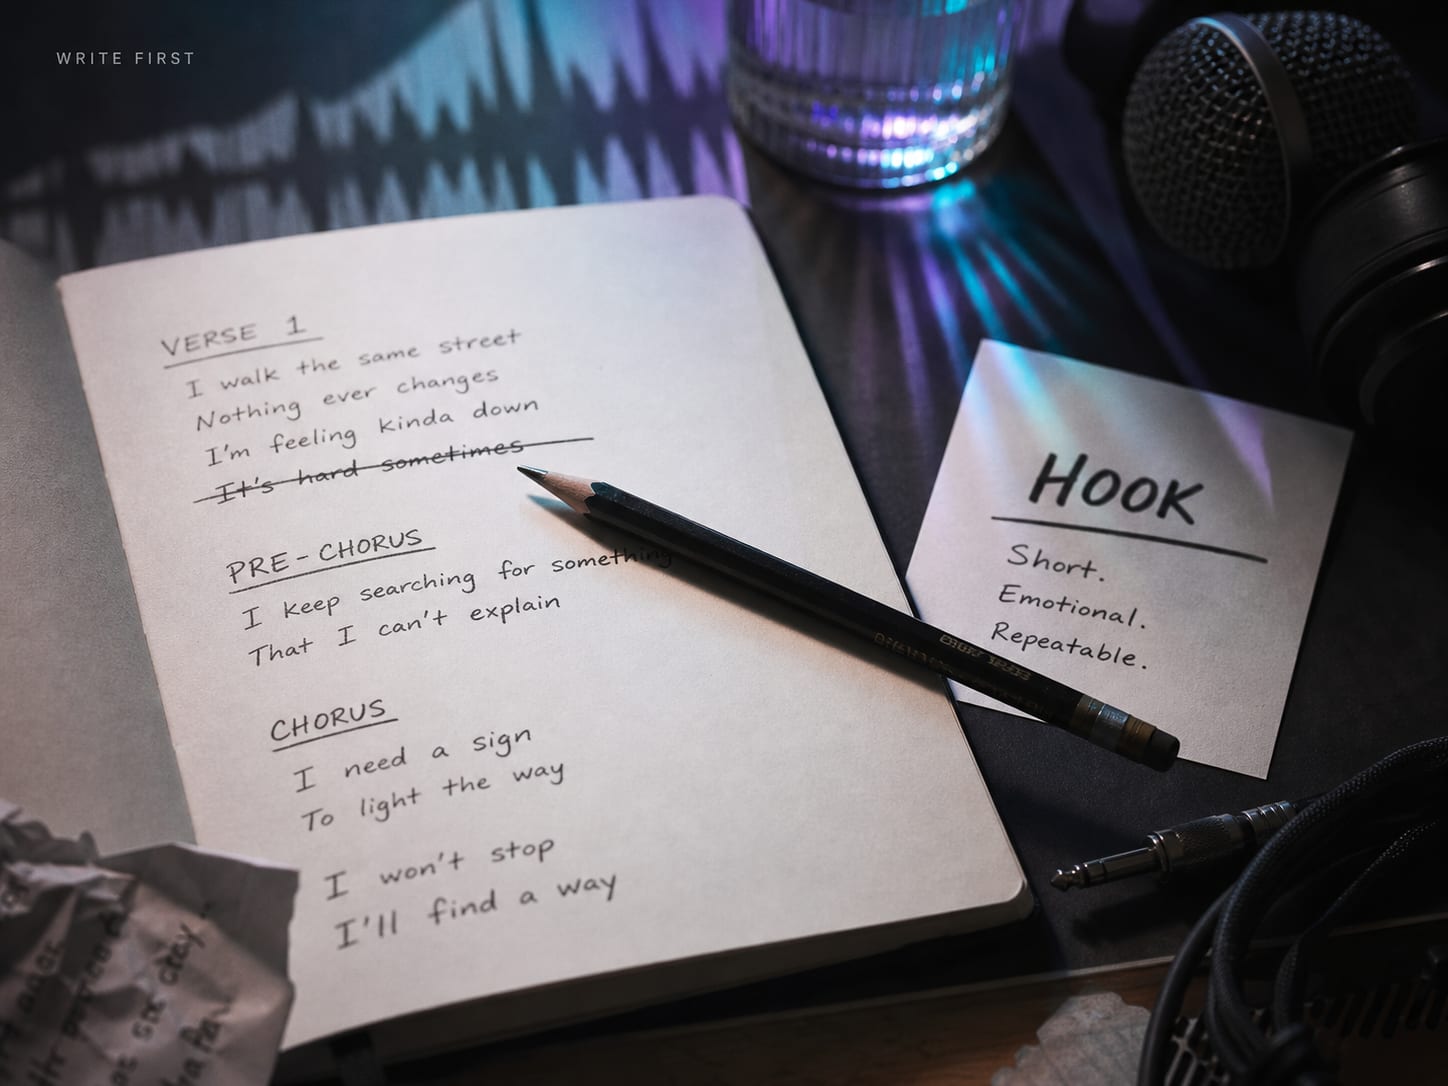 WRITE FIRST
VERSE 1
I walk the same street
Nothing ever changes
I'm feeling kinda down
It's hard sometimes
PRE-CHORUS
I keep searching for something
That I can't explain
CHORUS
I need a sign
To light the way
I won't stop
I'll find a way
HOOK
Short.
Emotional.
Repeatable.